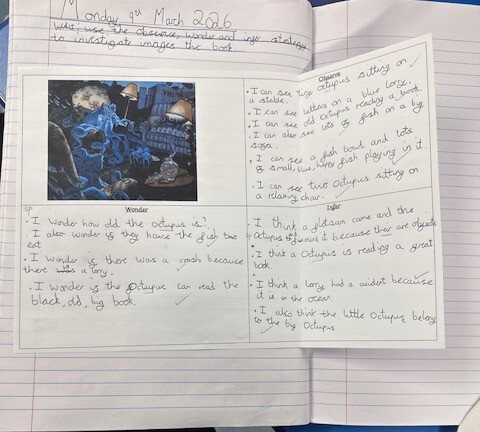 Monday 9th March 2026
WALT: use the observe, wonder and infer strategy
to investigate images the book
Observe
. I can see two octopus sitting on
a stable.
. I can see letters on a blue lorry.
. I can see old octopus reading a book.
. I can also see lots of fish on a big
sign.
. I can see a fish bowl and lots
of small, blue, happy fish playing in it.
. I can see two octopus sitting on
a relaxing chair.
Wonder
sp
. I wonder how old the octopus is?
I also wonder is they have the fish two
eat
. I wonder is there was a crash because
there was a lorry.
. I wonder is the octopus can read the
black, old, big book.
Infer
. I think a plotsam came and the
Octopus found it because ther are objects
. I think a Octopus is reading a great
book.
. I think a lorry had a acident because
it is in the ocean.
. I also think the little Octopus belong
to the big Octopus